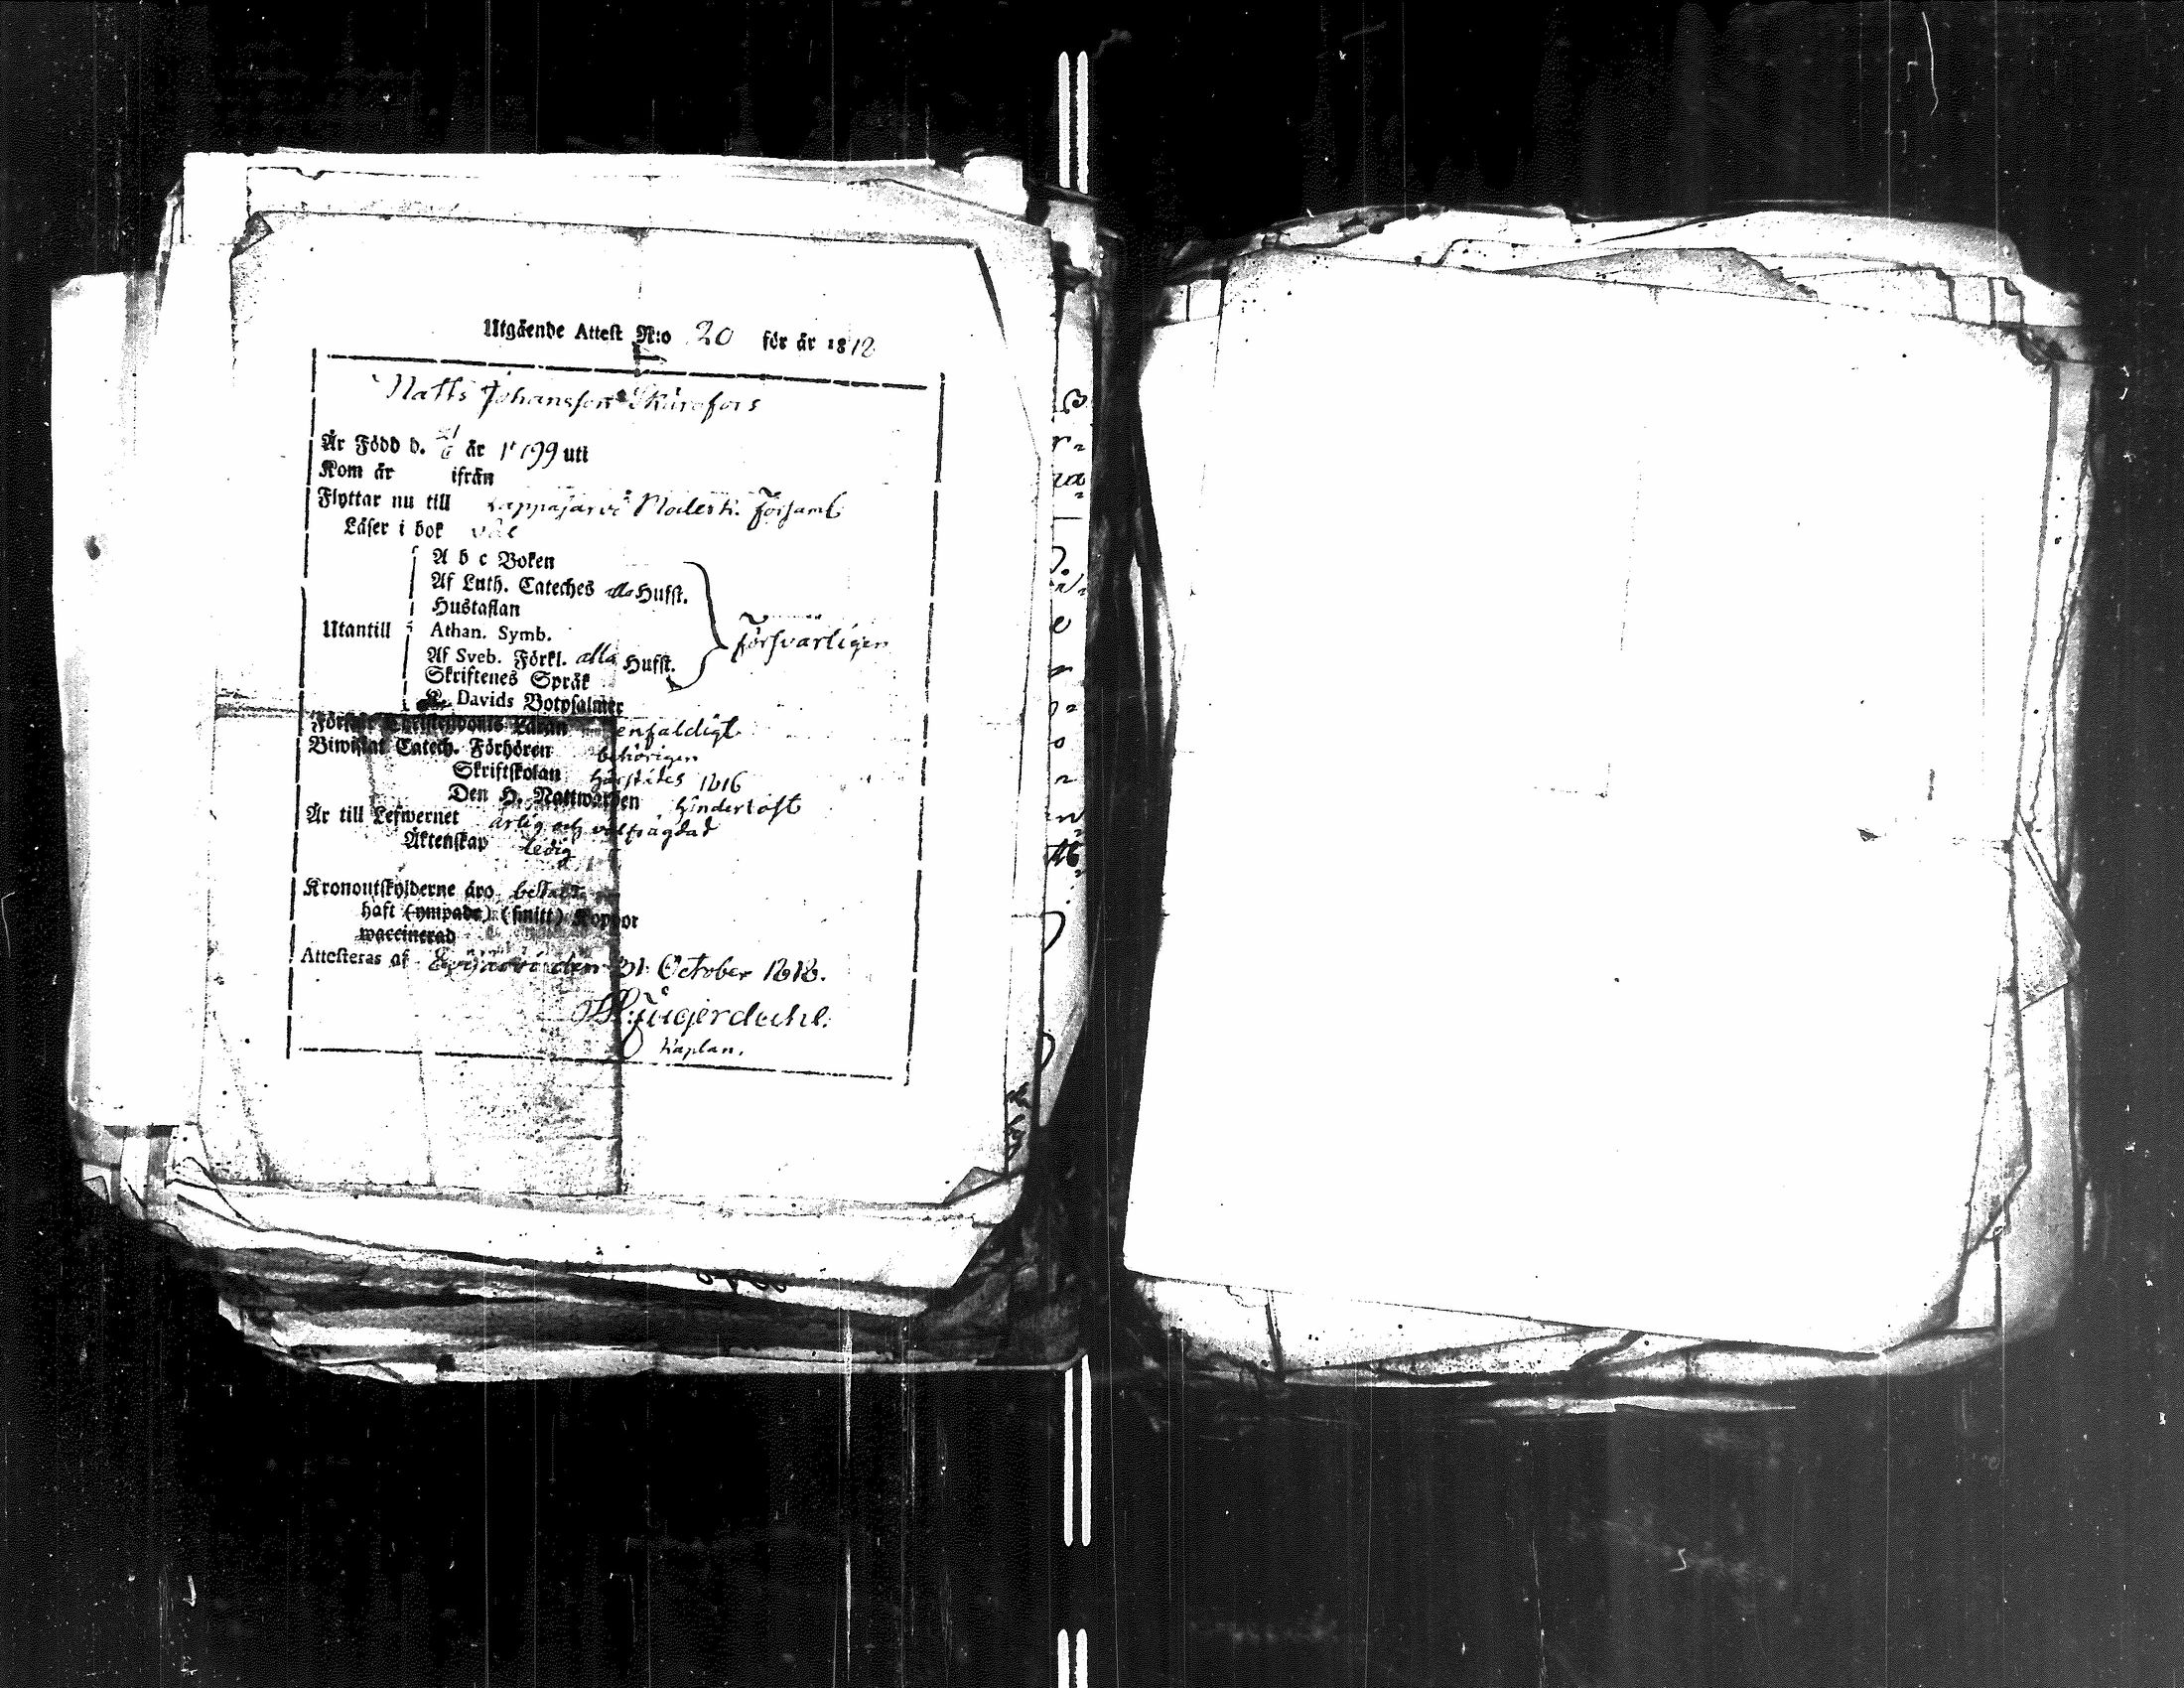 Utgående Attest N:o 20 för år 1812
Matts Johansson
År Född d. år 1799 uti
Kom år ifrån
Flyttar nu till Lappajärvi Moderk. församl
Läser i bok väl
A b c Boken
Af Luth. Cateches alla Hufst.
Hustaflan
Utantill Athan. Symb. försvarligen
Af Sveb. Förkl. alla Hufst.
Skriftenes Språk
K. Davids Botpsalmer
Förstår Christendoms Läran enfaldigt
Biwistat Catech. Förhören behörigen
Skriftskolan härstädes 1816
Den H. Nattwarden hinderlöst
Är till Lefwernet ärlig och välfrägdad
Äktenskap ledig
Kronoutskylderne äro
haft (ympade) (smitt) Koppor
waccinerad
Attesteras af den 31 October 1818.
Kaplan.